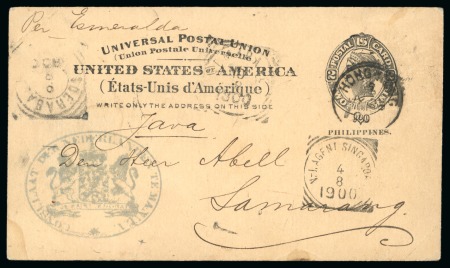 Per Esmeralda
UNIVERSAL POSTAL UNION
(Union Postale Universelle)
UNITED STATES OF AMERICA
(États-Unis d'Amérique)
WRITE ONLY THE ADDRESS ON THIS SIDE
POSTAL CARD
PHILIPPINES.
HONG
1900
SOERABA
Java
Den Heer Abell
Samarang
N.I. AGENT SINGAPORE
4
8
1900